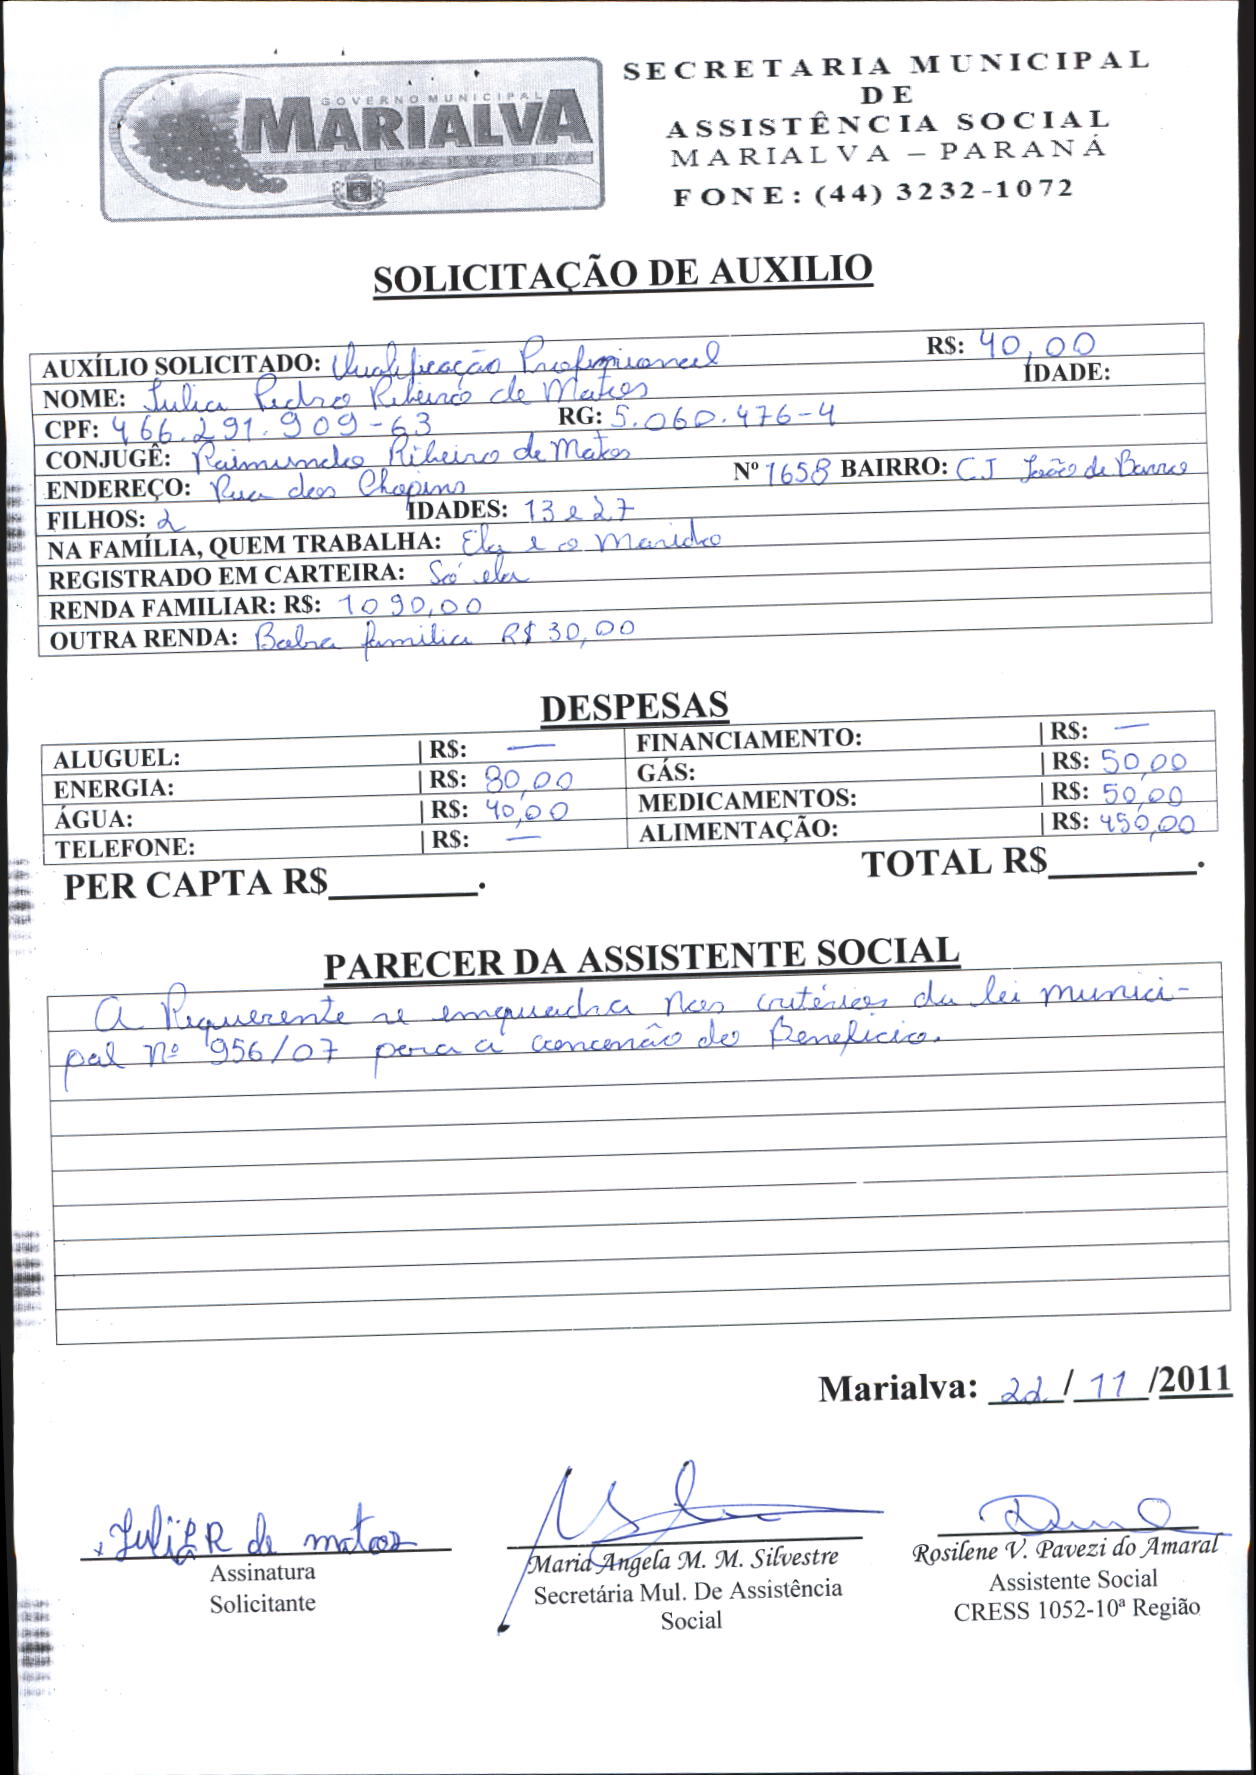 GOVERNO MUNICIPAL
MARIALVA
CAPITAL DA UVA FINA
SECRETARIA MUNICIPAL
DE
ASSISTÊNCIA SOCIAL
MARIALVA – PARANÁ
FONE: (44) 3232-1072
SOLICITAÇÃO DE AUXILIO
AUXÍLIO SOLICITADO: Qualificação Profissional R$: 40,00
NOME: Julia Pedro Ribeiro de Matos IDADE:
CPF: 466.291.909-63 RG: 5.060.476-4
CONJUGÊ: Raimundo Ribeiro de Matos
ENDEREÇO: Rua dos Chopins Nº 1658 BAIRRO: CJ João de Barro
FILHOS: 2 IDADES: 13 e 27
NA FAMÍLIA, QUEM TRABALHA: Ela e o Marido
REGISTRADO EM CARTEIRA: Só ela
RENDA FAMILIAR: R$: 1090,00
OUTRA RENDA: Bolsa família R$ 30,00
DESPESAS
ALUGUEL: | R$: — FINANCIAMENTO: | R$: —
ENERGIA: | R$: 80,00 GÁS: | R$: 50,00
ÁGUA: | R$: 40,00 MEDICAMENTOS: | R$: 50,00
TELEFONE: | R$: — ALIMENTAÇÃO: | R$: 450,00
PER CAPTA R$________. TOTAL R$________.
PARECER DA ASSISTENTE SOCIAL
A Requerente se enquadra nos critérios da lei munici-
pal nº 956/07 para a concessão do Benefício.
Marialva: 22/11/2011
Julia R de matos
Assinatura
Solicitante
Maria Angela M. M. Silvestre
Secretária Mul. De Assistência
Social
Rosilene V. Pavezi do Amaral
Assistente Social
CRESS 1052-10ª Região